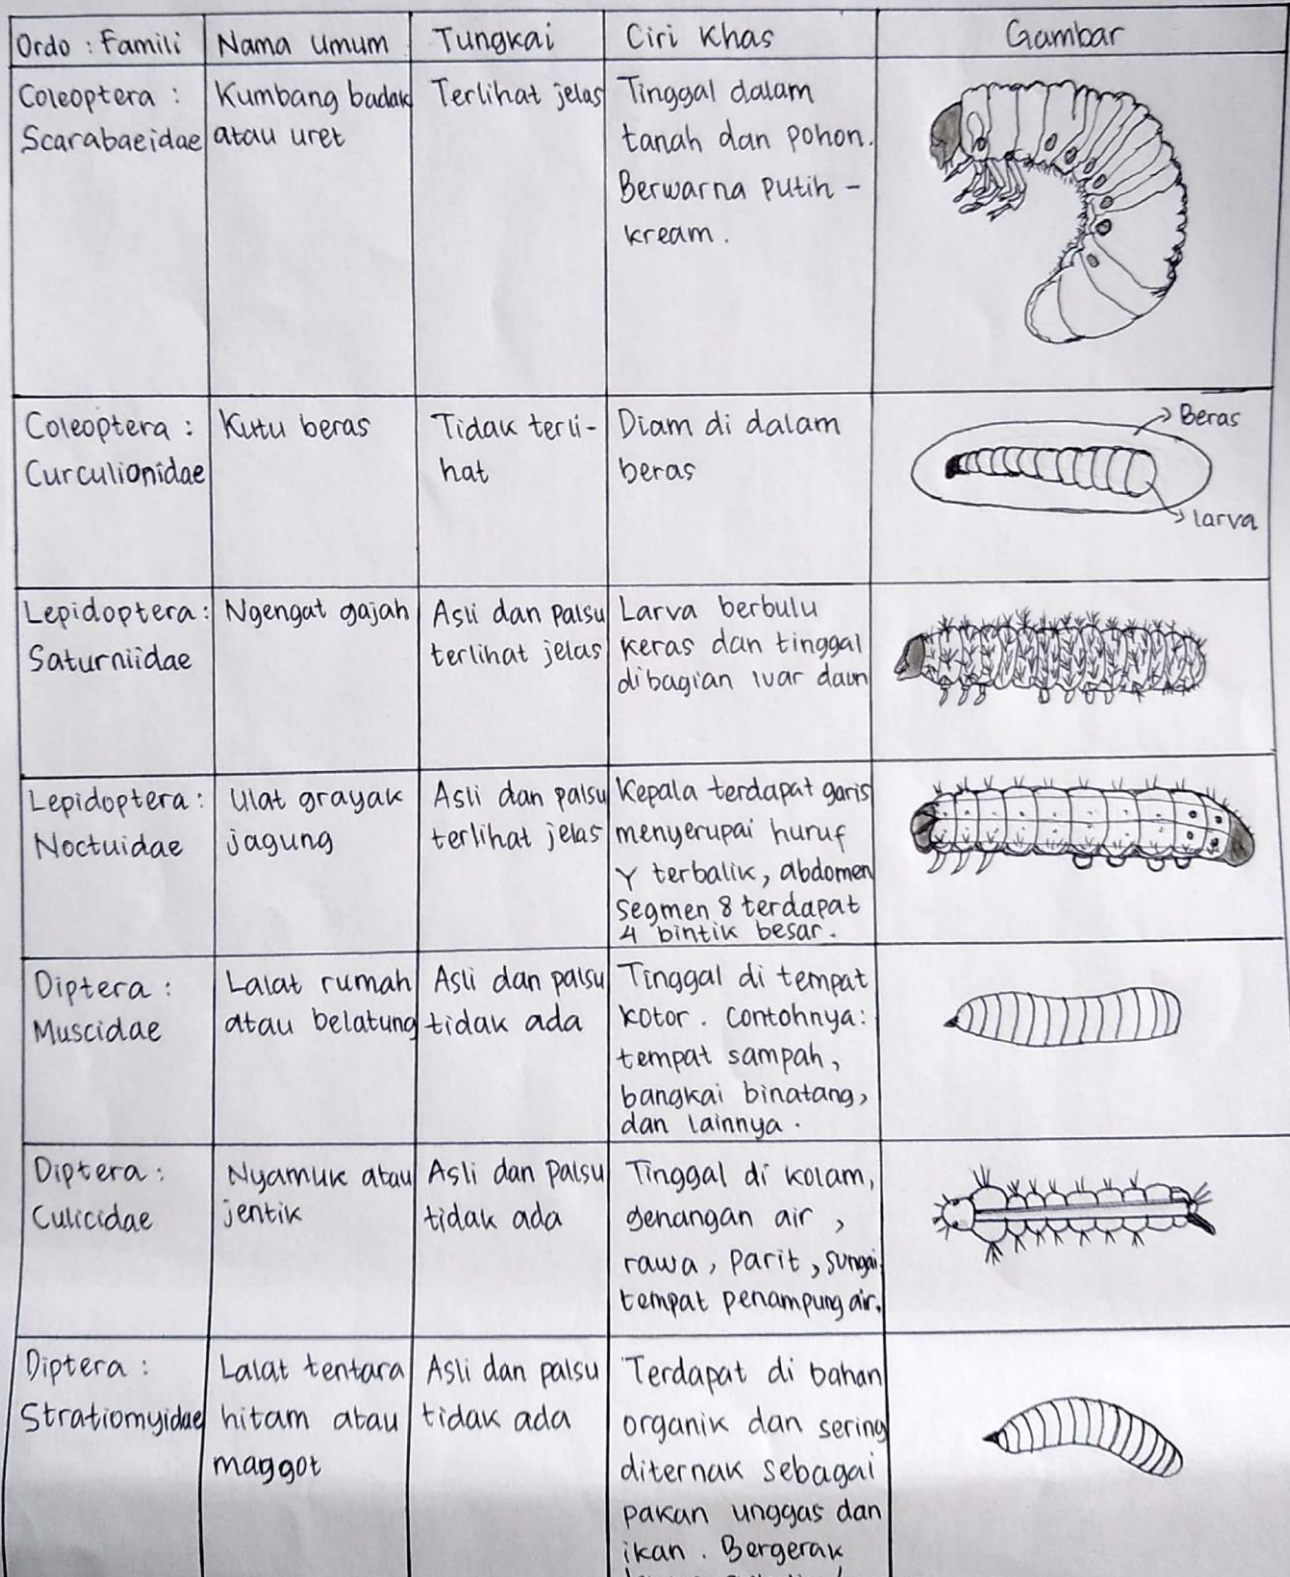 Ordo : Famili
Nama umum
Tungkai
Ciri khas
Gambar
Coleoptera :
Scarabaeidae
Kumbang badak
atau uret
Terlihat jelas
Tinggal dalam
tanah dan pohon.
Berwarna putih -
kream.
Coleoptera :
Curculionidae
Kutu beras
Tidak terli-
hat
Diam di dalam
beras
Beras
larva
Lepidoptera :
Saturniidae
Ngengat gajah
Asli dan palsu
terlihat jelas
Larva berbulu
keras dan tinggal
dibagian luar daun
Lepidoptera :
Noctuidae
Ulat grayak
jagung
Asli dan palsu
terlihat jelas
Kepala terdapat garis
menyerupai huruf
Y terbalik, abdomen
segmen 8 terdapat
4 bintik besar.
Diptera :
Muscidae
Lalat rumah
atau belatung
Asli dan palsu
tidak ada
Tinggal di tempat
kotor. Contohnya:
tempat sampah,
bangkai binatang,
dan lainnya.
Diptera :
Culicidae
Nyamuk atau
jentik
Asli dan palsu
tidak ada
Tinggal di kolam,
genangan air,
rawa, parit, sungai
tempat penampung air.
Diptera :
Stratiomyidae
Lalat tentara
hitam atau
maggot
Asli dan palsu
tidak ada
Terdapat di bahan
organik dan sering
diternak sebagai
pakan unggas dan
ikan. Bergerak